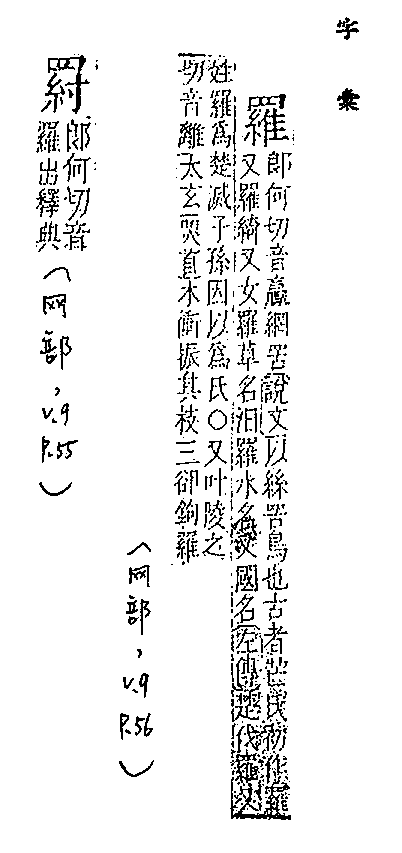 字彙
羅
郎何切音網罟說文以絲罟鳥也古者芒氏初作羅
又羅綺又女羅草名汨羅水名又國名左傳楚伐羅又
姓羅為楚滅子孫因以為氏○又叶陵之
切音離太玄直木衝振其枝三卻鉤羅
(网部, V.9 P.56)
郎何切音
羅出釋典
(网部, V.9 P.55)